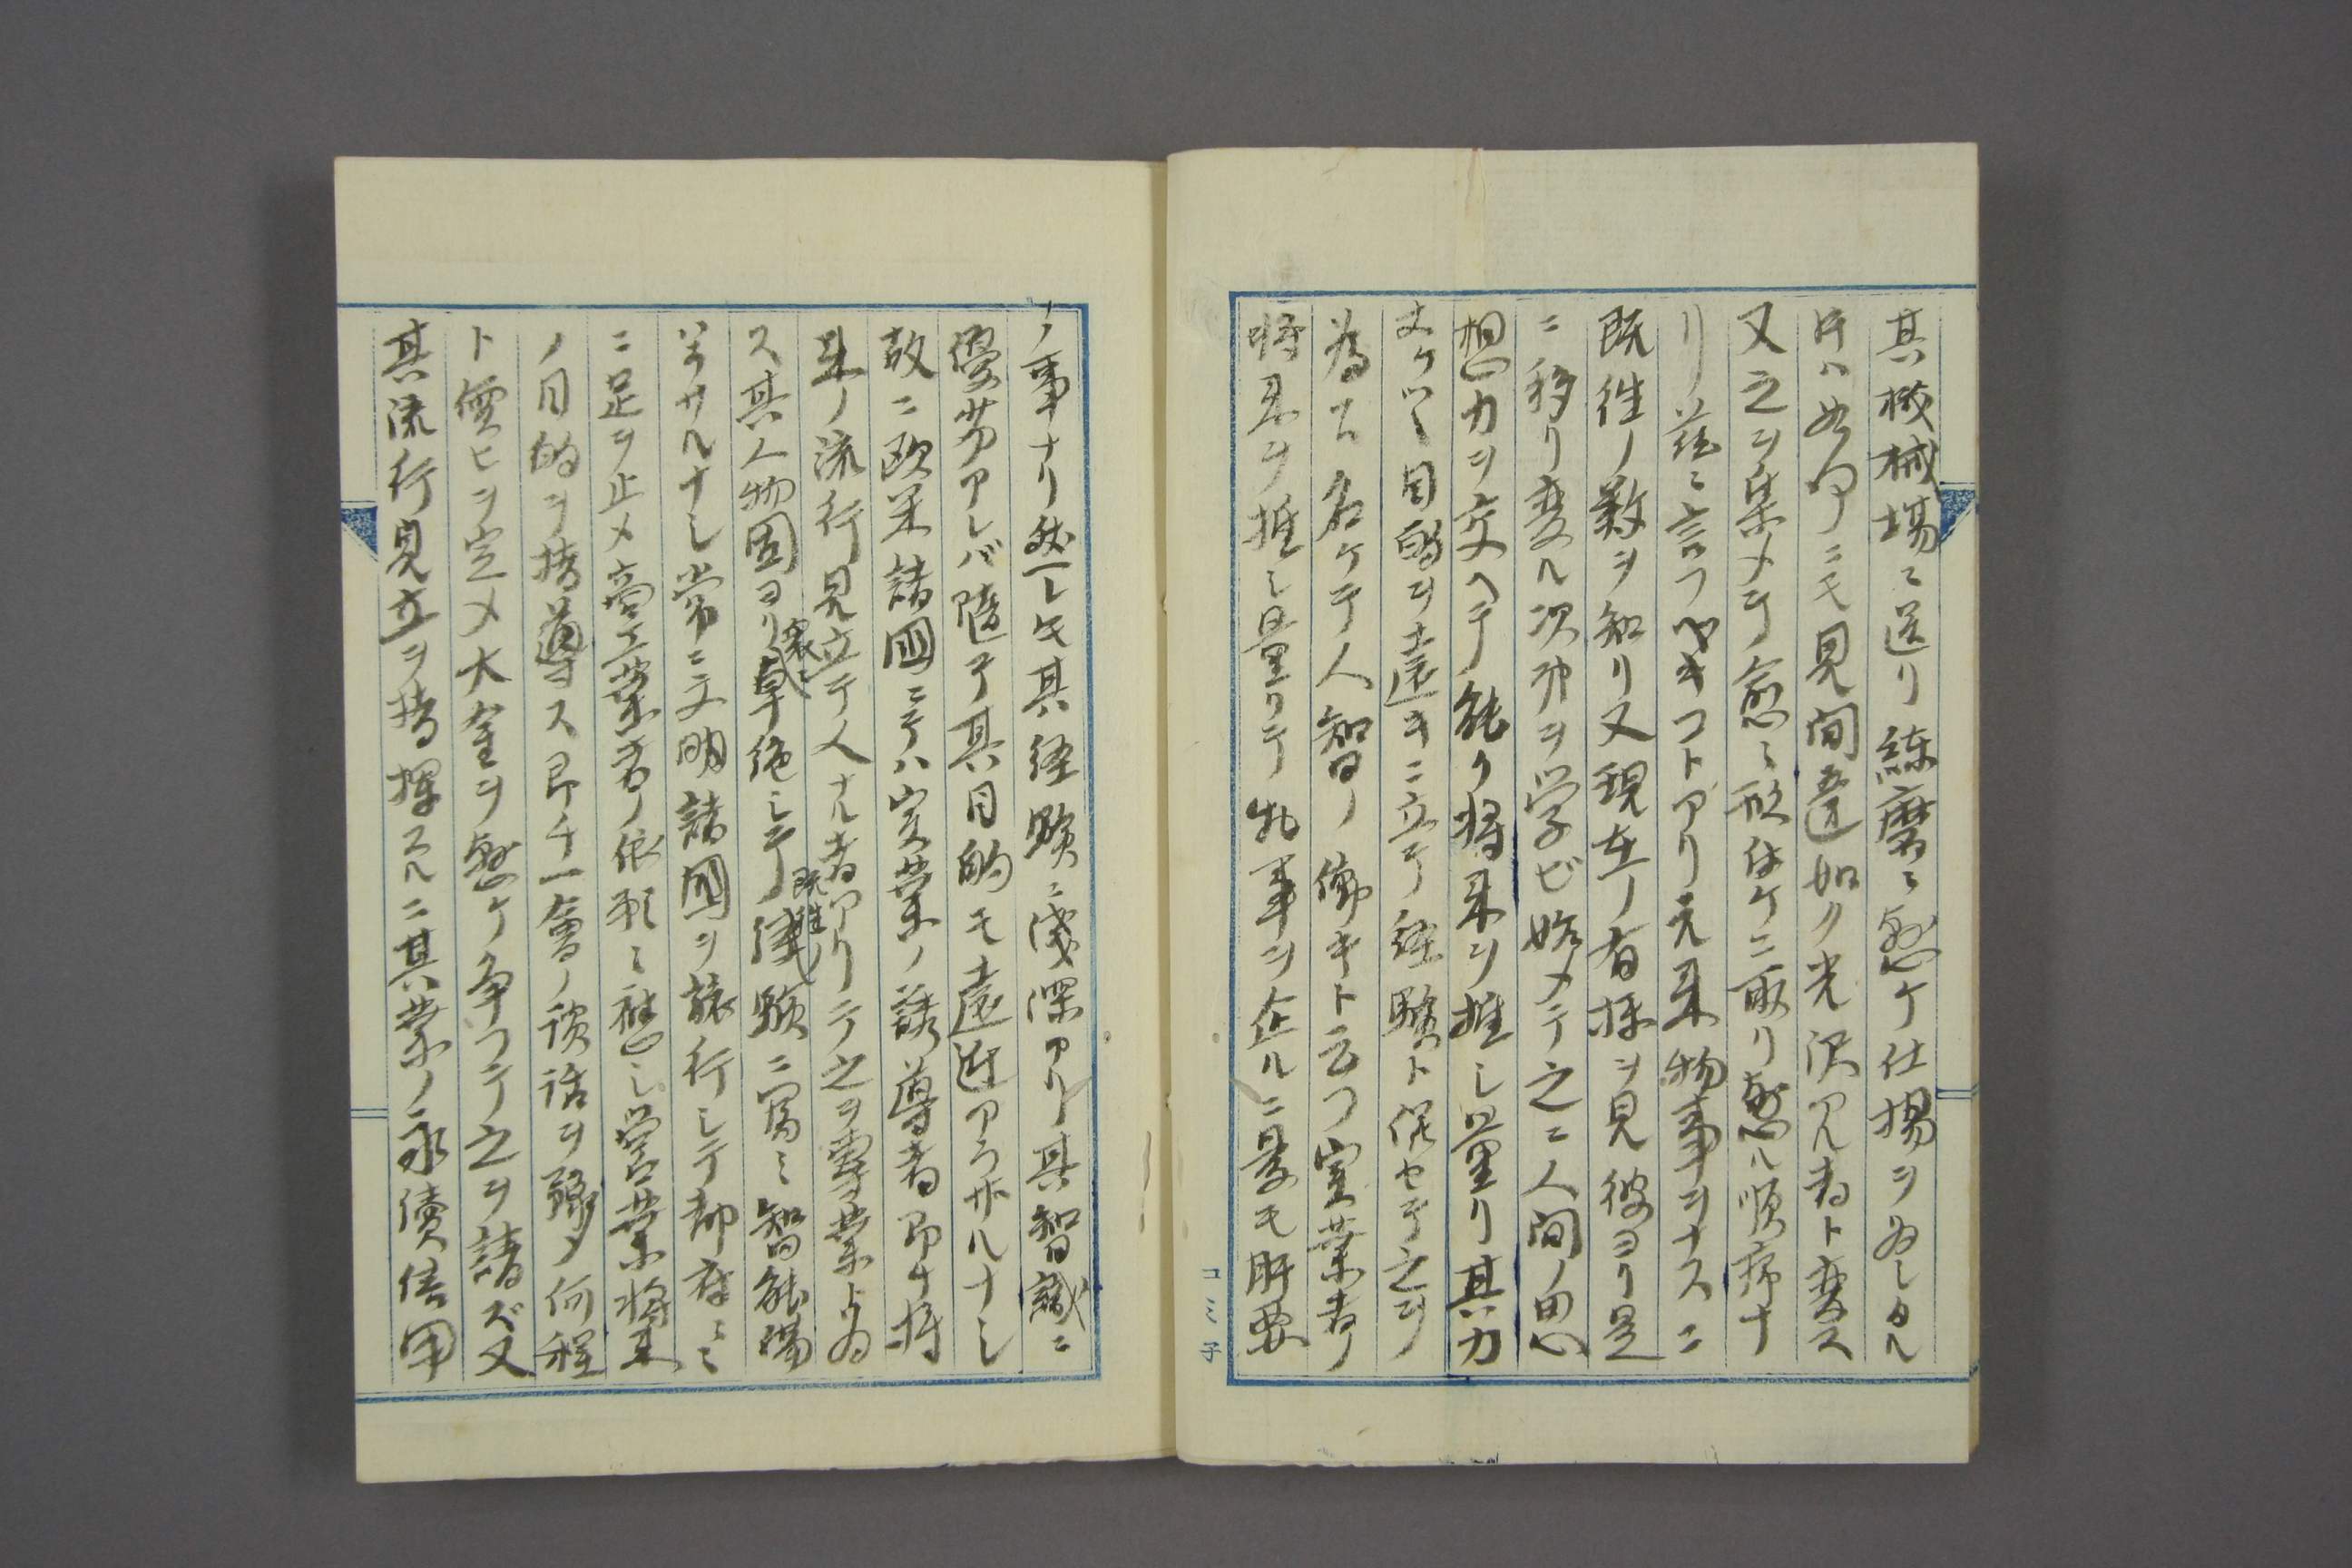 其機械場ニ送リ練磨ニ懸ケ仕揚ヲ為シタル
片ハ如何ニモ見間違如ク光沢アル者ト変ス
又之ヲ集メテ愈ミ形付ケニ取リ懸ル順序ナ
リ茲ニ言フベキコトアリ元来物事ヲナスニ
既往ノ数ヲ知リ又現在ノ有様ヲ見彼ヨリ是
ニ移リ変ル次第ヲ学ビ始メテ之ニ人間ノ思
想力ヲ交ヘテ能ク将来ヲ推シ量リ其力
丈ケツヽ目的ヲ遠キニ立テ経験ト併セテ之ヲ
為ス名ケテ人智ノ働キト云フ実業者ノ
将来ヲ推シ量リテ此事ヲ企ルニ最モ肝要
ノ事ナリ然レ𪜈其経験ニ浅深アリ其智識ニ
優劣アレバ随テ其目的モ遠近アラザルナシ
故ニ欧米諸国ニテハ実業ノ誘導者即チ将
来ノ流行見立テ人ナル者アリテ之ヲ専業ト為
ス其人物固ヨリ衆ニ卓絶シテ既往ノ経験ニ富ミ智能満
サルナシ常ニ文明諸国ヲ旅行シテ都府ニ
ニ足ヲ止メ商工業者ノ依頼ニ応シ営業将来
ノ目的ヲ指導ス即チ一会ノ談話ヲ聴ク何程
ト価ヒヲ定メ大金ヲ懸ケ争フテ之ヲ請ズ又
其流行見立ヲ指揮スルニ其業ノ永続信用
コミ子